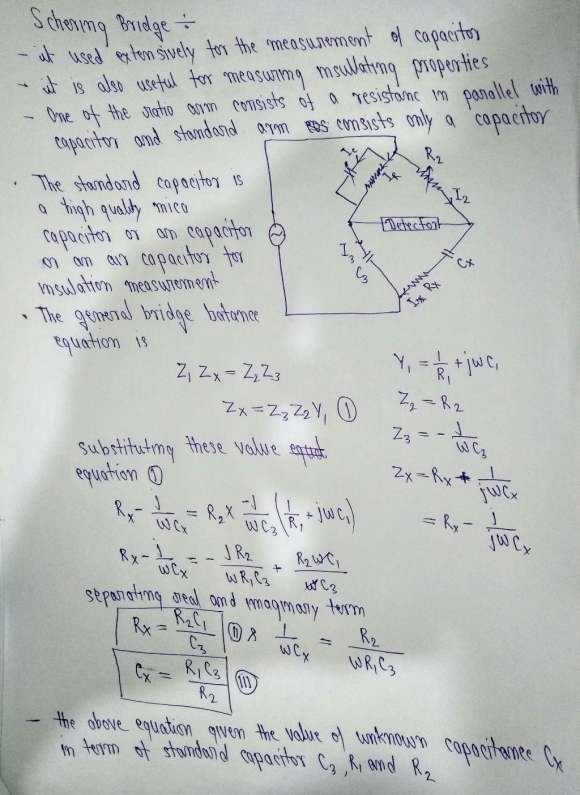 Schering Bridge ÷
- it used extensively for the measurement of capacitor
- it is also useful for measuring insullating properties
- One of the ratio arm consists of a resistanc in parallel with
capacitor and standard arm consists only a capacitor
• The standard capacitor is
a high quality mica
capacitor or an capacitor
or an air capacitor for
insulation measurement
• The general bridge balance
equation is
Ic
IR
R2
I2
Detector
I3
C3
Cx
Rx
Ix
Z1 Zx = Z2Z3
Zx = Z3 Z2 Y1 ①
Y1 = 1/R1 + jωC1
Z2 = R2
Z3 = - J/ωC3
Zx = Rx + 1/jωCx
= Rx - j/jωCx
substituting these value
equation ①
Rx - J/ωCx = R2 x -J/ωC3 (1/R1 + jωC1)
Rx - j/ωCx = - JR2/ωR1C3 + R2ωC1/ωC3
separating real and imaginary term
Rx = R2C1/C3 (II) & 1/ωCx = R2/ωR1C3
Cx = R1C3/R2 (III)
- the above equation given the value of unknown capacitance Cx
in term of standard capacitor C3, R1 and R2